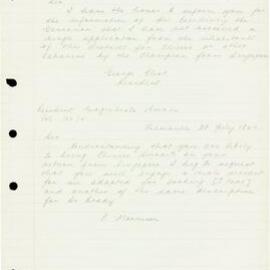 Sir,
I have the honor to inform you for
the information of His Excellency the
Governor that I have not received a
single application from the inhabitants
of this District for Chinese or other
Labourers by the Champion from Singapore
George Eliot
Resident
Resident Magistrate
Fremantle 28 July
Sir
Understanding that you are likely
to bring Chinese Servants on your
return from Singapore I beg to request
that you will engage a male servant
for me adapted for Cooking
and another of the same description
for Dr